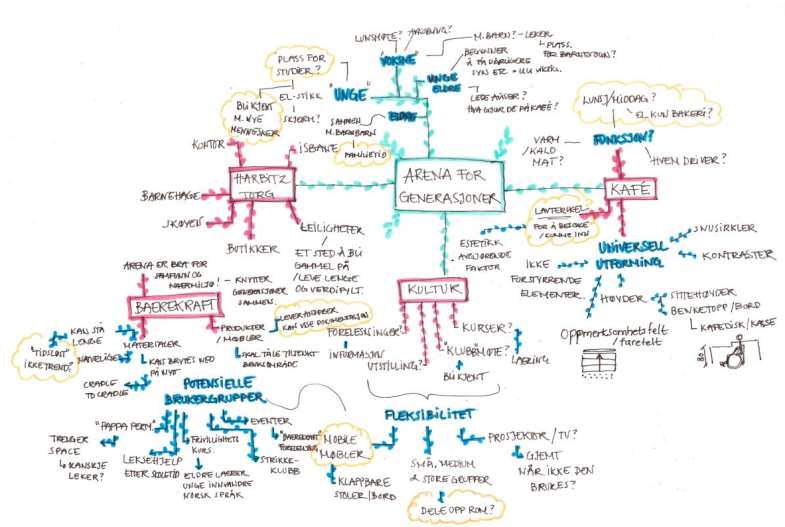 LUNSJMØTE?
AVKOBLING?
"VOKSNE"
M. BARN? - LEKER
PLASS.
FOR BARNEVOGN?
BEGYNNER
Å FÅ DÅRLIGERE
SYN ETC = UU VIKTIG.
UNGE
ELDRE
LESE AVISER?
HVA GJØR DE PÅ KAFÉ?
PLASS FOR
STUDIER?
"UNGE"
EL-STIKK
SKJERM?
BLI KJENT
M. NYE
MENNESKER
ELDRE
SAMMEN
M. BARNEBARN
FAMILIETID
LUNSJ/MIDDAG?
EL KUN BAKERI?
FUNKSJON?
VARM
/KALD
MAT?
HVEM DRIVER?
KONTOR
ISBANE
HARBITZ
TORG
BARNEHAGE
SKØYEN
BUTIKKER
LEILIGHETER
ET STED Å BLI
GAMMEL PÅ
/LEVE LENGE
OG VERDIFULLT.
ARENA FOR
GENERASJONER
KAFÉ
LAVTERSKEL
FOR Å BESØKE
/KOMME INN
ESTETIKK
AVGJØRENDE
FAKTOR
UNIVERSELL
UTFORMING
SNUSIRKLER
KONTRASTER
IKKE
FORSTYRRENDE
ELEMENTER.
HØYDER
SITTEHØYDER
BENKETOPP/BORD
KAFEDISK/KASSE
Oppmerksomhetsfelt
/farefelt
ARENA ER BRA FOR
SAMFUNN OG
NÆRMILJØ!
KNYTTER
GENERASJONER
SAMMEN.
BAEREKRAFT
PRODUKTER
/MØBLER
LEVERANDØRER
KAN VISE DOKUMENTASJON
SKAL TÅLE TILTENKT
BRUKSOMRÅDE
KAN STÅ
LENGE
MATERIALER
"TIDSLØST"
IKKE TREND?
NATURLIGE
KAN BRYTES NED
PÅ NYTT
CRADLE
TO CRADLE
KULTUR
FORELESNINGER?
INFORMASJON
UTSTILLING?
KURSER?
"KLUBBMØTE"?
LÆRING
BLI KJENT
POTENSIELLE
BRUKERGRUPPER
"PAPPA PERM."
TRENGER
SPACE
KANSKJE
LEKER?
LEKSEHJELP
ETTER SKOLETID
FRIVILLIGHET
KURS.
ELDRE LÆRER
UNGE INNVANDRE
NORSK SPRÅK
EVENTER
"BAEREKRAFT"
FORELESNING
STRIKKE-
KLUBB
FLEKSIBILITET
MOBILE
MØBLER
KLAPPBARE
STOLER/BORD
SMÅ, MEDIUM
& STORE GRUPPER
DELE OPP ROM?
PROSJEKTOR/TV?
GJEMT
NÅR IKKE DEN
BRUKES?